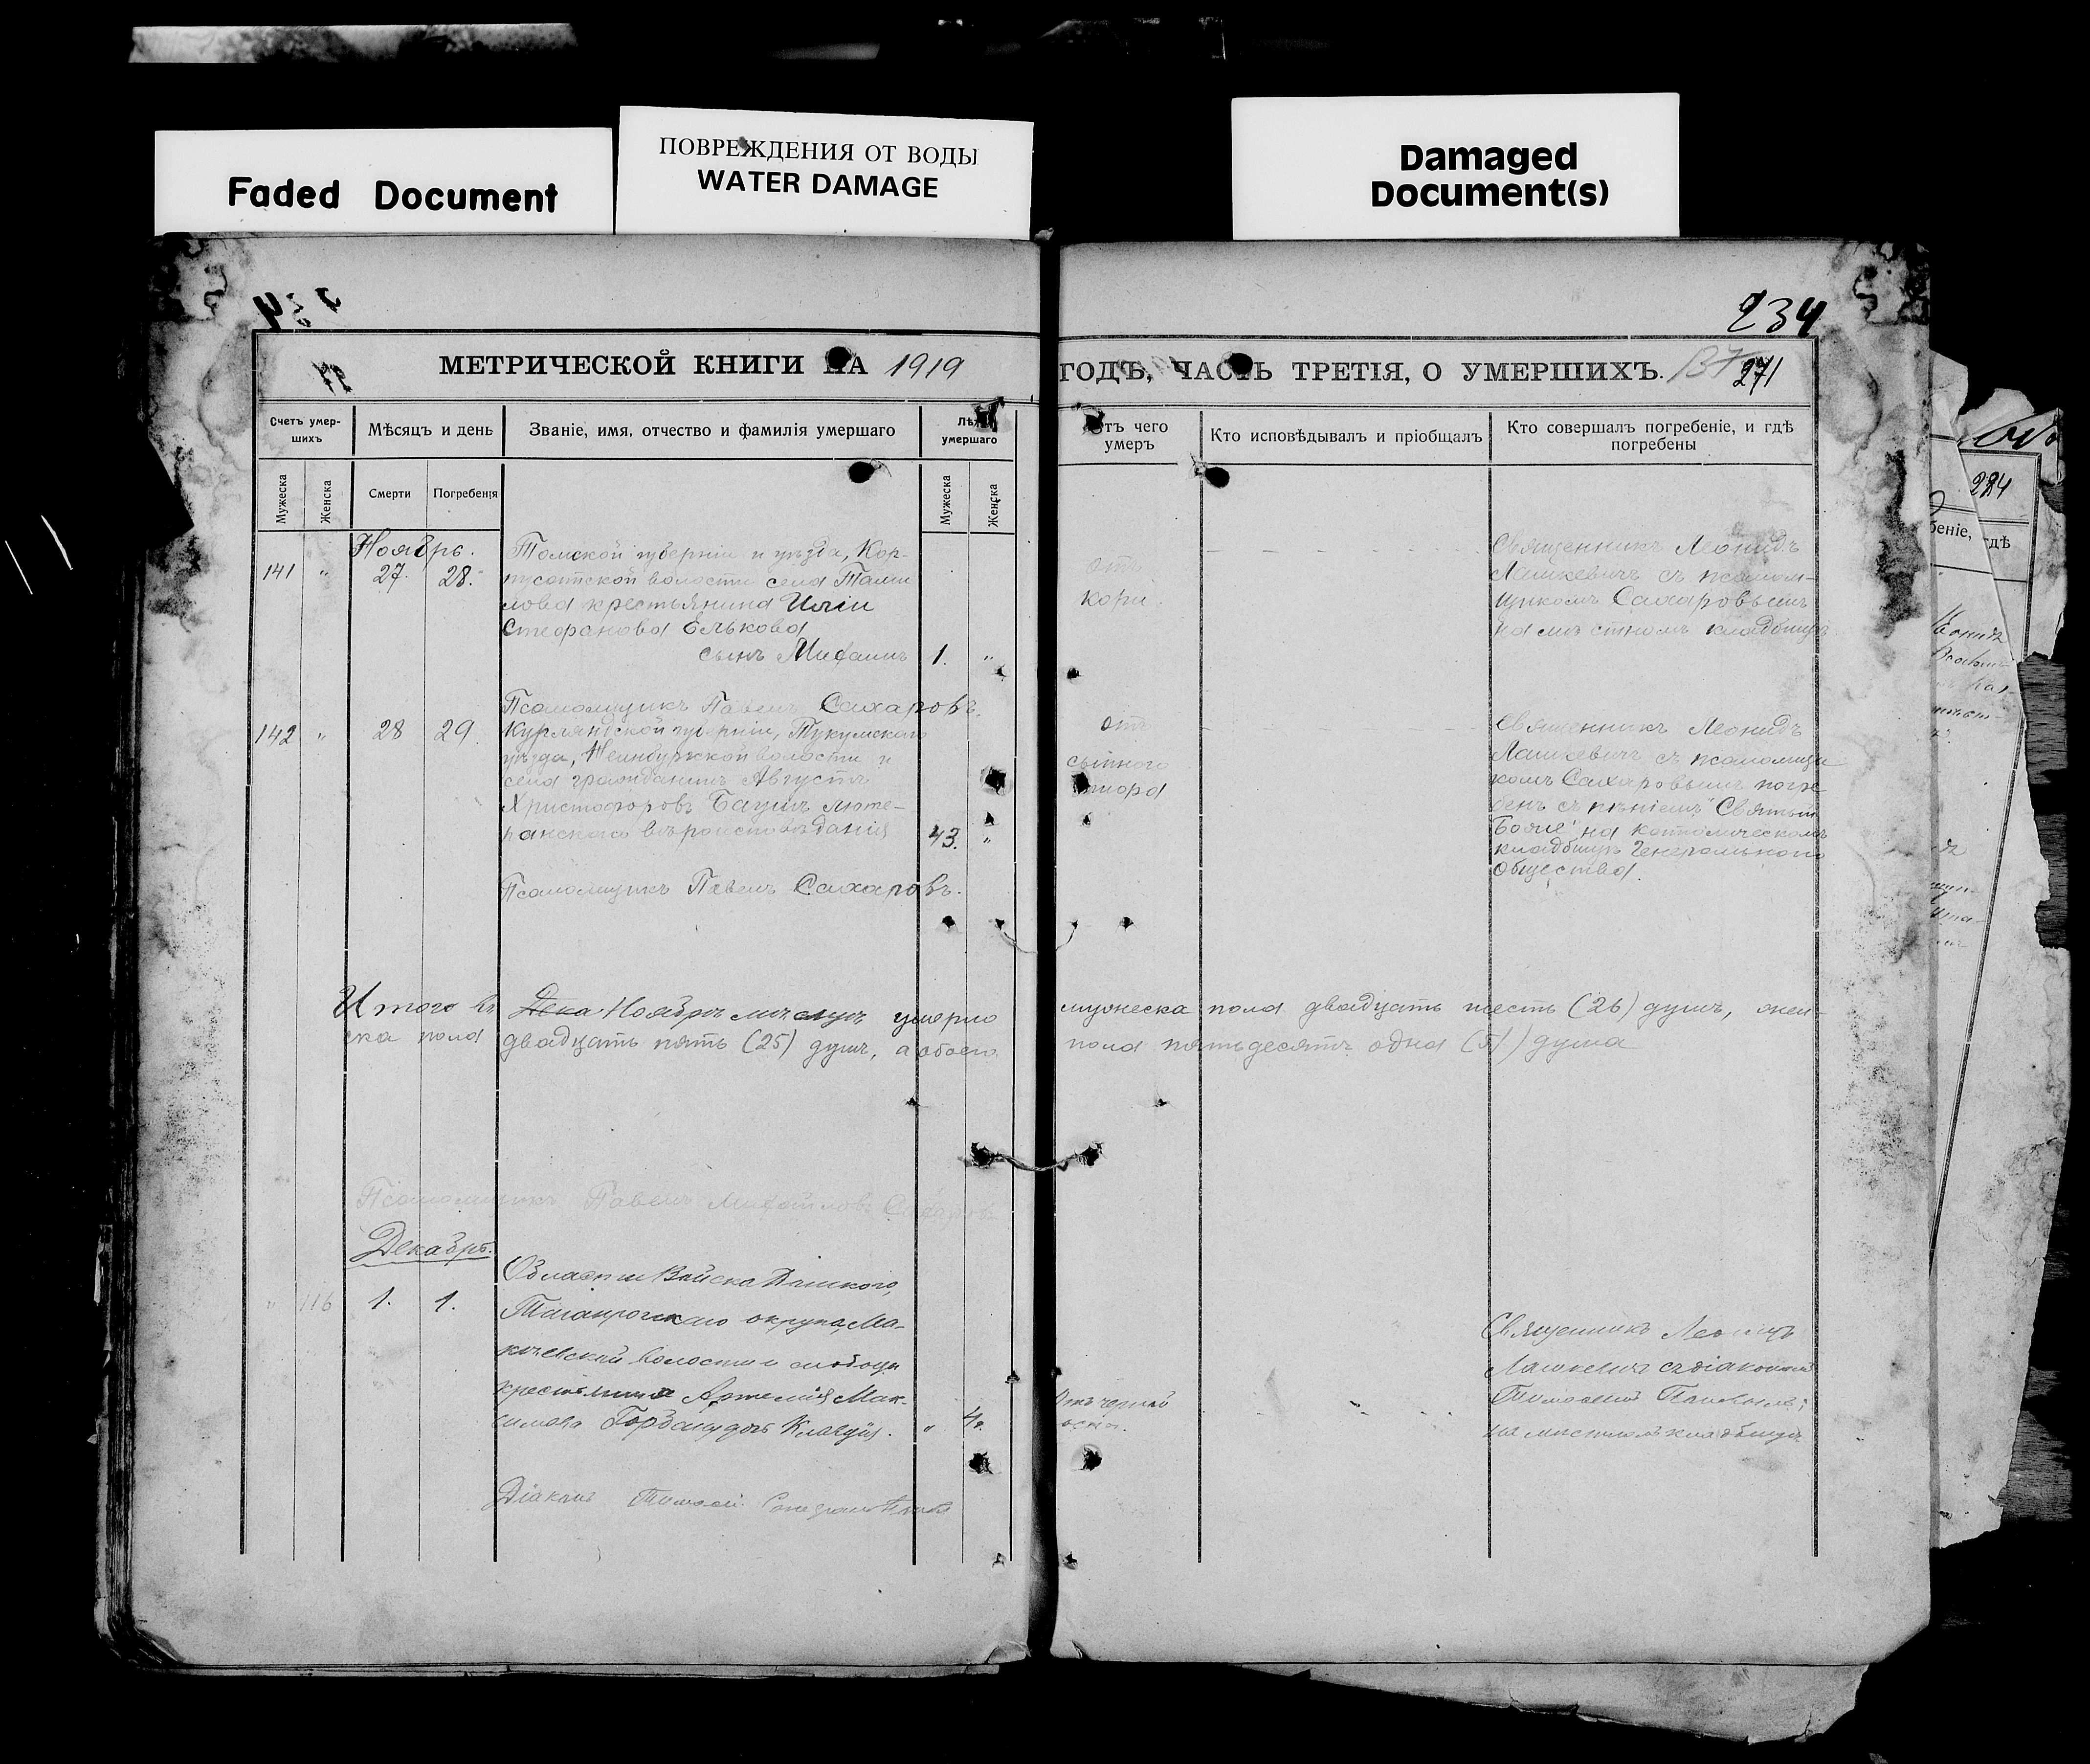 Faded Document
ПОВРЕЖДЕНИЯ ОТ ВОДЫ
WATER DAMAGE
Damaged
Document(s)
234
МЕТРИЧЕСКОЙ КНИГИ НА 1919
ГОДЪ, ЧАСТЬ ТРЕТІЯ, О УМЕРШИХЪ.
271
Счетъ умер-
шихъ
Мѣсяцъ и день
Званіе, имя, отчество и фамилія умершаго
Лѣта
умершаго
Отъ чего
умеръ
Кто исповѣдывалъ и пріобщалъ
Кто совершалъ погребеніе, и гдѣ
погребены
Мужеска
Женска
Смерти
Погребенія
Мужеска
Женска
Ноябрь.
141 " 27. 28.
Томской губерніи и уѣзда, Кор-
волости села
крестьянина Иліи
Стефанова Елькова
сынъ Михаилъ 1. "
отъ
кори.
Священникъ Леонидъ
Лашкевичъ съ псалом-
щикомъ Сахаровымъ
на мѣстномъ кладбищѣ
Псаломщикъ Павелъ Сахаровъ.
142 " 28 29.
Курляндской губерніи, Тукумскаго
уѣзда, волости и
села гражданинъ Августъ
Христофоровъ Баумъ люте-
ранскаго вѣроисповѣданія 43. "
отъ
сыпного
тифа
Священникъ Леонидъ
Лашкевичъ съ псаломщи-
комъ Сахаровымъ погре-
бенъ съ пѣніемъ "Святый
Боже" на католическомъ
кладбищѣ Генеральнаго
Общества.
Псаломщикъ Павелъ Сахаровъ.
Итого въ Дека Ноябрѣ мѣсяцѣ умерло мужеска пола двадцать шесть (26) душъ, жен-
ска пола двадцать пять (25) душъ, а обоего пола пятьдесятъ одна (51) душа
Псаломщикъ Павелъ Михайловъ Сахаровъ
Декабрь.
" 116 1. 1.
Области Войска Донского,
Таганрогскаго округа, Ма-
кѣевской волости и слободы
крестьянина Артемія Мак-
симова Горбаня дочь Клавдія. " 4.
Отъ черной
оспы.
Священникъ Леонидъ
Лашкевичъ съ діакономъ
Тимофеемъ
на мѣстномъ кладбищѣ
Діаконъ Тимофей
224
беніе, гдѣ